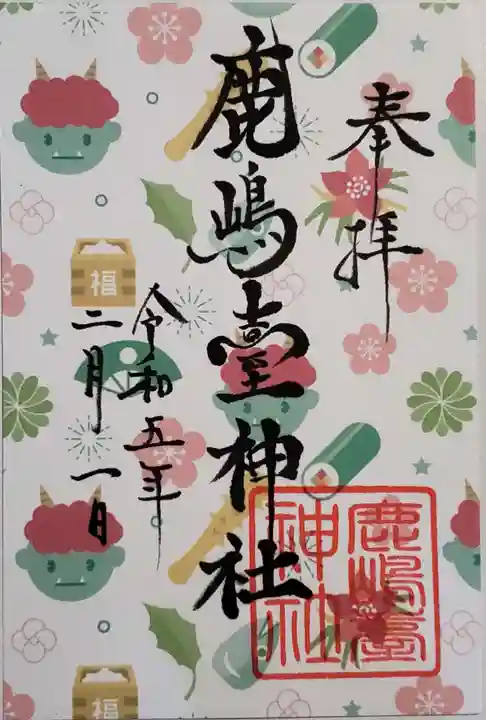 奉拝
鹿嶋臺神社
令和五年
二月一日
鹿嶋臺
神社
福
福